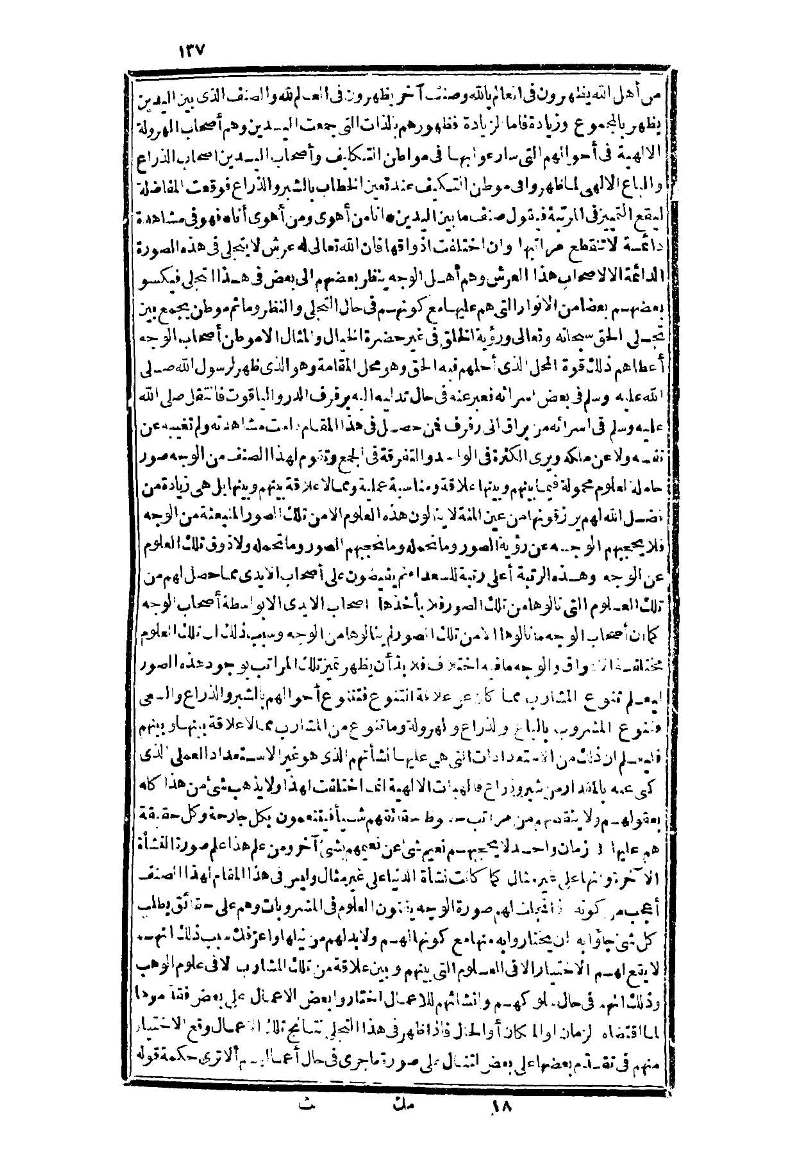 ١٣٧
من أهل الله يظهرون فى العالم بالله وصنف آخر يظهرون فى العالم لله والصنف الذى بين اليدين
يظهر بالمجموع وزيادة فاما الزيادة فظهورهم بالذات التى جمعت اليدين وهم أصحاب الهرولة
الالهية فى أحوالهم التى سارعوا بها فى مواطن التكليف وأصحاب اليدين اصحاب الذراع
والباع الالهى لما ظهروا فى موطن التكيف عند تعين الخطاب بالشبر والذراع فوقعت المفاضلة
ليقع التمييز فى المرتبة فيقول صنف ما بين اليدين * انا من أهوى ومن أهوى أنا * فهو فى مشاهدة
دائمة لا تنقطع مراتبها وان اختلفت اذواقها فان الله تعالى له عرش لا يتجلى فى هذه الصورة
الدائمة الا لاصحاب هذا العرش وهم أهل الوجه ينظر بعضهم الى بعض فى هذا التجلى فيكسو
بعضهم بعضا من الانوار التى هم عليها مع كونهم فى حال التجلى والنظر وما ثم موطن يجمع بين
تجلى الحق سبحانه وتعالى ورؤية الخلق فى غير حضرة الخيال والمثال الا موطن أصحاب الوجه
أعطاهم ذلك قوة المحل الذى أحلهم فيه الحق وهو محل المقامة وهو الذى ظهر لرسول الله صلى
الله عليه وسلم فى بعض اسرائه فعبر عنه فى حال تدليه اليه برفرف الدر والياقوت فانتقل صلى الله
عليه وسلم فى اسرائه من براق الى رفرف فمن حصل فى هذا المقام دامت مشاهدته ولم تغيبه عن
نفسه ولا عن ملكه ويرى الكثرة فى الواحد والتفرقة فى الجمع وتقوم لهذا الصنف من الوجه صور
حاملة لعلوم محمولة فيما بينهم وبينها علاقة ومناسبة عملية ومما لا علاقة بينهم وبينها بل هى زيادة من
فضل الله لهم يرزقونها من عين المنة لا ينالون هذه العلوم الا من تلك الصور المنبعثة من الوجه
فلا يحجبهم الوجه عن رؤية الصور وما تحمله وما تحجبهم الصور وما تحمله ولا ذوق تلك العلوم
عن الوجه وهذه الرتبة أعلى رتبة للسعداء ثم يفيضون على أصحاب الايدى مما حصل لهم من
تلك العلوم التى نالوها من تلك الصور فلا يأخذها اصحاب الايدى الا بواسطة أصحاب الوجه
كما ان أصحاب الوجه ما نالوها الا من تلك الصور لم ينالوها من الوجه وسبب ذلك ان تلك العلوم
مختلفة الاذواق والوجه ما فيه اختلاف فلا بد أن يظهر تميز تلك المراتب بوجود هذه الصور
ليعلم تنوع المشارب مما كان عن علاقة التنوع فتنوع أحوالهم بالشبر والذراع والسعى
فتنوع المشروب بالباع والذراع والهرولة وما تنوع من المشارب مما لا علاقة بينها وبينهم
فليعلم ان ذلك من الاستعدادات التى هى عليها نشأتهم الذى هو غير الاستعداد العملى الذى
كنى عنه بالمقدار من شبر وذراع فالهبات الالهية انما اختلفت لهذا ولا يذهب شئ من هذا كله
بعقولهم ولا ينقصهم من مراتب حظوظ حقائقهم شيأ فيتنعمون بكل جارحة وكل حقيقة
هم عليها فى زمان واحد لا يحجبهم نعيم شئ عن نعيمهم بشئ آخر ومن علم هذا علم صورة النشأة
الآخرة وانها على غير مثال كما كانت نشأة الدنيا على غير مثال وليس فى هذا المقام لهذا الصنف
أعجب من كونهم اذا تجلت لهم صورة الوجه ينالون العلوم فى المشروبات وهم على حقائق يطلب
كل شئ جاؤا به ان يختاروا به منها مع كونها لهم ولا بد لهم من نيلها واعزف سبب ذلك انهم
لا يقع لهم الاختيار الا فى العلوم التى بينهم وبين علاقة من تلك المشارب لا فى علوم الوهب
وذلك انهم فى حال سلوكهم وانشائهم للاعمال اختاروا بعض الاعمال على بعض فقدموها
لما اقتضاه الزمان او المكان أو الحال فاذا ظهر فى هذا التجلى نتائج تلك الاعمال وقع الاختيار
منهم فى تقديم بعضها على بعض التنال على صورة ما جرى فى حال أعمالهم ألا ترى حكمة قوله
١٨ مك ث